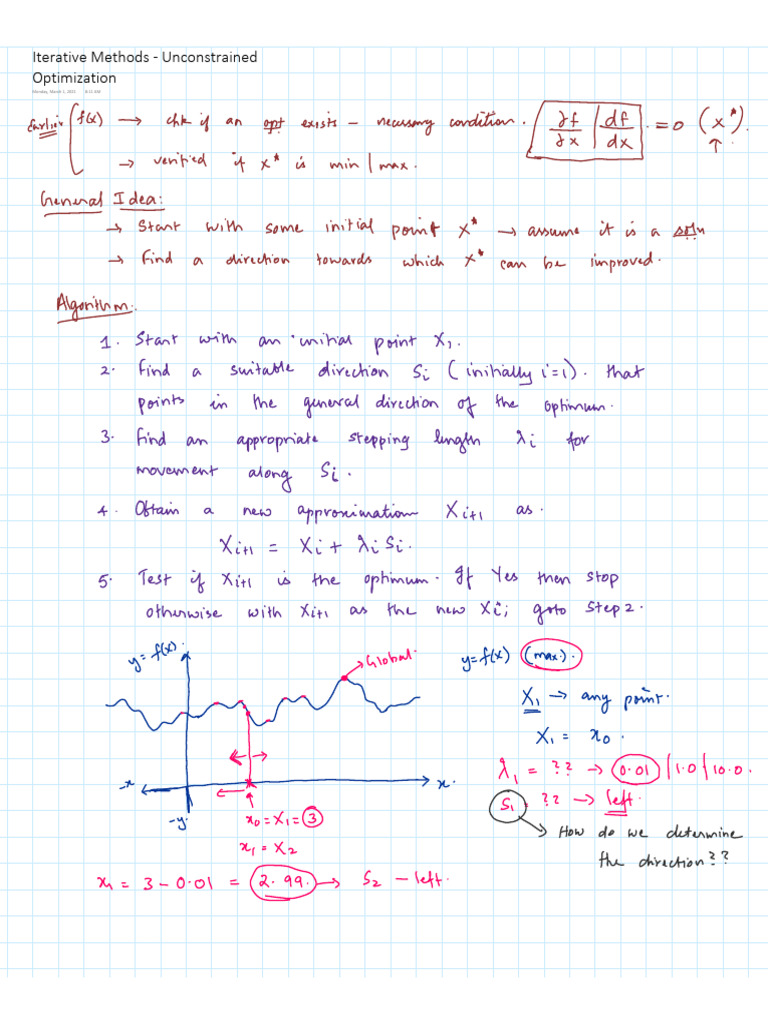 Iterative Methods - Unconstrained
Optimization
Monday, March 1, 2021
Earlier f(x) → chk if an opt exists – necessary condition. ∂f/∂x | df/dx = 0 (x*).
→ verified if x* is min | max.
General Idea:
→ Start with some initial point x* → assume it is a soln
→ Find a direction towards which x* can be improved.
Algorithm:
1. Start with an initial point X₁.
2. Find a suitable direction Sᵢ (initially i=1). that
points in the general direction of the optimum.
3. Find an appropriate stepping length λᵢ for
movement along Sᵢ.
4. Obtain a new approximation Xᵢ₊₁ as.
Xᵢ₊₁ = Xᵢ + λᵢ Sᵢ.
5. Test if Xᵢ₊₁ is the optimum. If Yes then stop
otherwise with Xᵢ₊₁ as the new Xᵢ; goto Step 2.
y = f(x).
Global.
-x
x.
-y.
x₀ = X₁ = 3
x₁ = X₂
x₁ = 3 – 0.01 = 2.99. → S₂ – left.
y = f(x) (max.).
X₁ → any point.
X₁ = x₀.
λ₁ = ?? → 0.01 | 1.0 | 10.0.
S₁. ?? → left.
How do we determine
the direction??